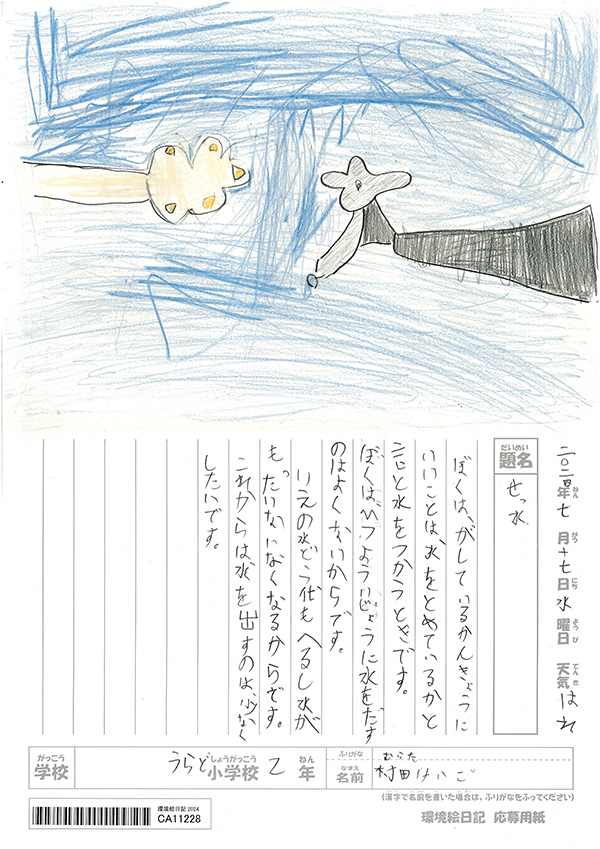 二〇二四年七月十七日水曜日 天気はれ
ねん がつ にち ようび てんき
だいめい
題名
せっ水
ぼくは、がしているかんきょうに
いいことは、水をとめているかと
と水をつかうときです。
ぼくは、ひつよういじょうに水をだす
のはよくないからです。
いえの水どう代もへるし水が
もったいないなくなるからです。
これからは水を出すのは、少なく
したいです。
がっこう
学校
うらど小学校 2年
しょうがっこう ねん
ふりがな むらた
なまえ
名前 村田けいご
(漢字で名前を書いた場合は、ふりがなをふってください)
環境絵日記2024
CA11228
環境絵日記 応募用紙